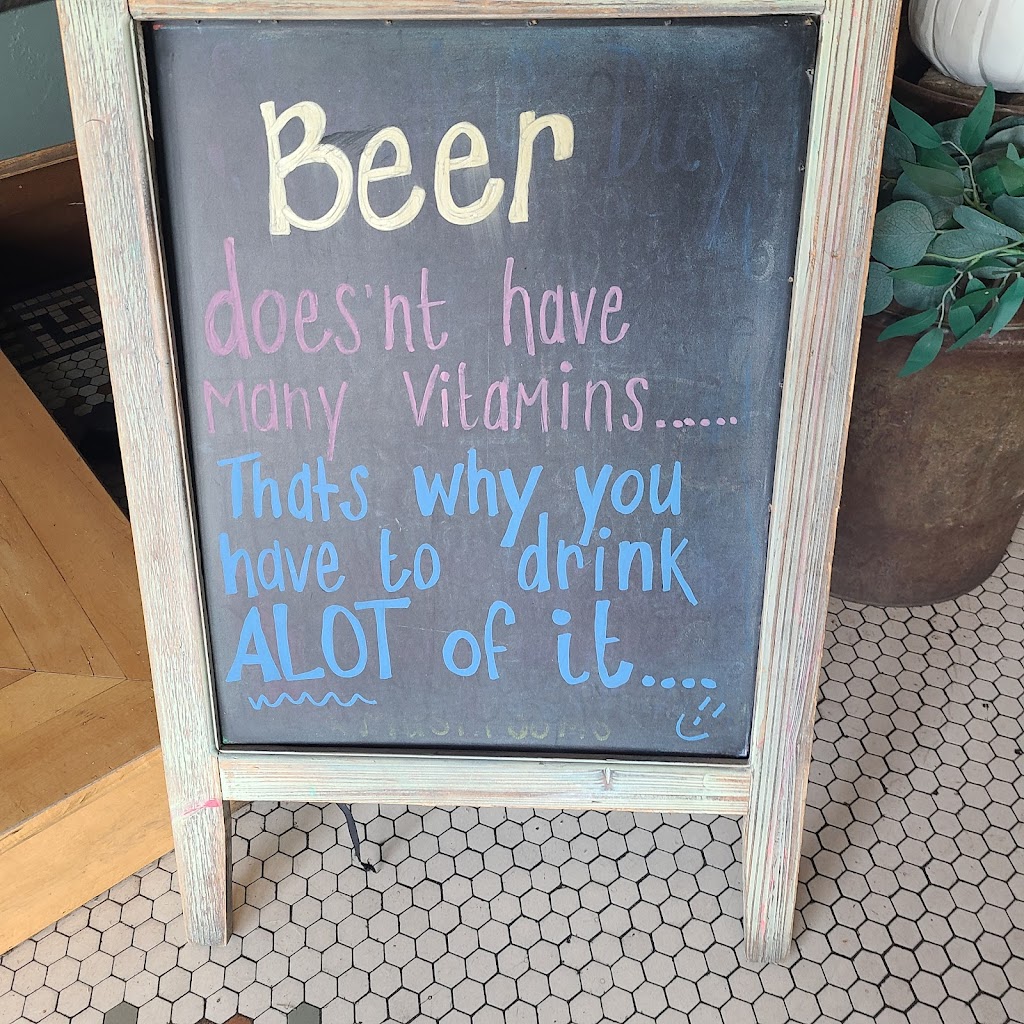 Beer
does'nt have
many Vitamins......
Thats why you
have to drink
ALOT of it....